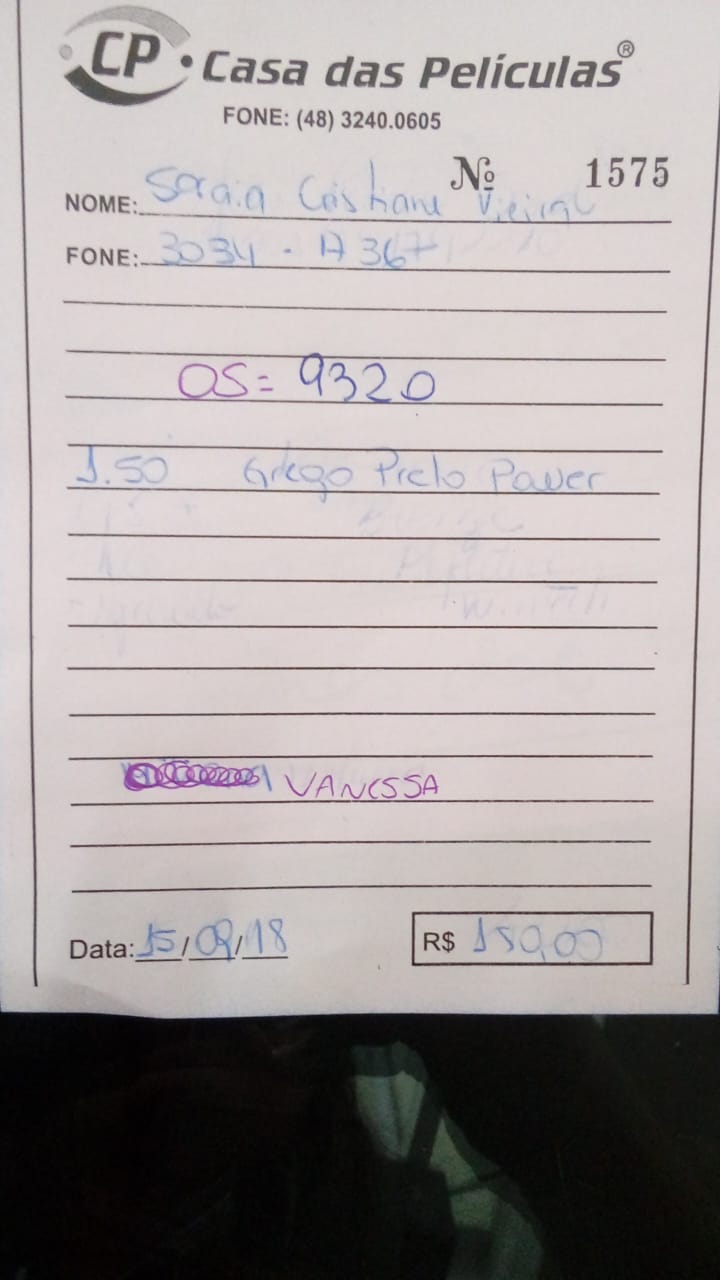 CP • Casa das Películas®
FONE: (48) 3240.0605
Nº 1575
NOME: Soraia Cristiane Vieira
FONE: 3034 -
OS= 9320
1.50 Grego Preto Power
VANESSA
Data: 15/09/18 R$ 150,00